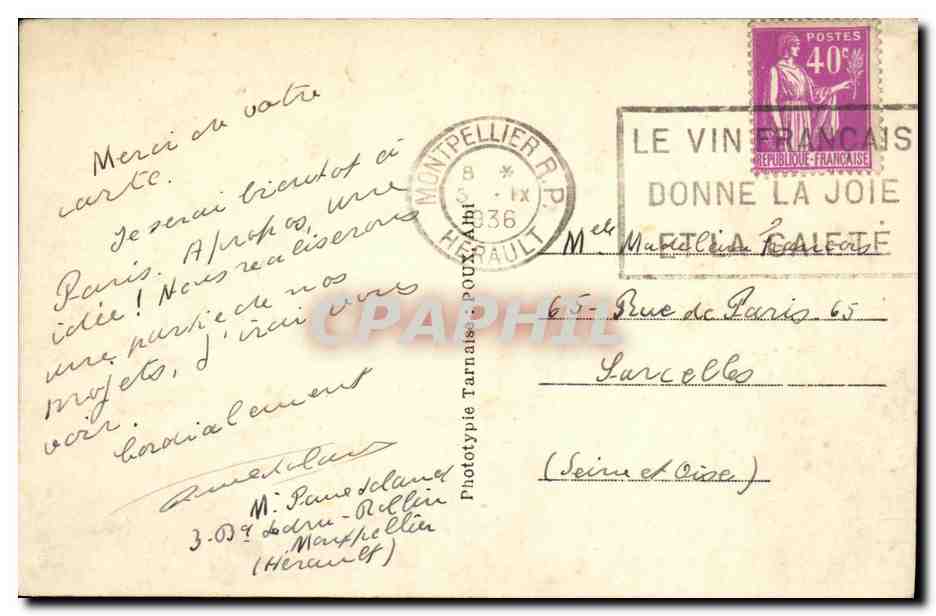 Merci de votre
carte.
Je serai bientôt à
Paris. A propos, une
idée ! Nous realiserons
une partie de nos
projets, j'irai vous
voir.
Cordialement
3. Bd Ledru-Rollin
Montpellier
(Hérault)
Phototypie Tarnaise : POUX, Albi
MONTPELLIER R.P.
8 *
3 - IX
1936
HERAULT
POSTES
40c
REPUBLIQUE-FRANÇAISE
LE VIN FRANCAIS
DONNE LA JOIE
ET LA GAIETÉ
Melle Madeleine François
65- Rue de Paris. 65
Sarcelles
(Seine et Oise)
CPAPHIL